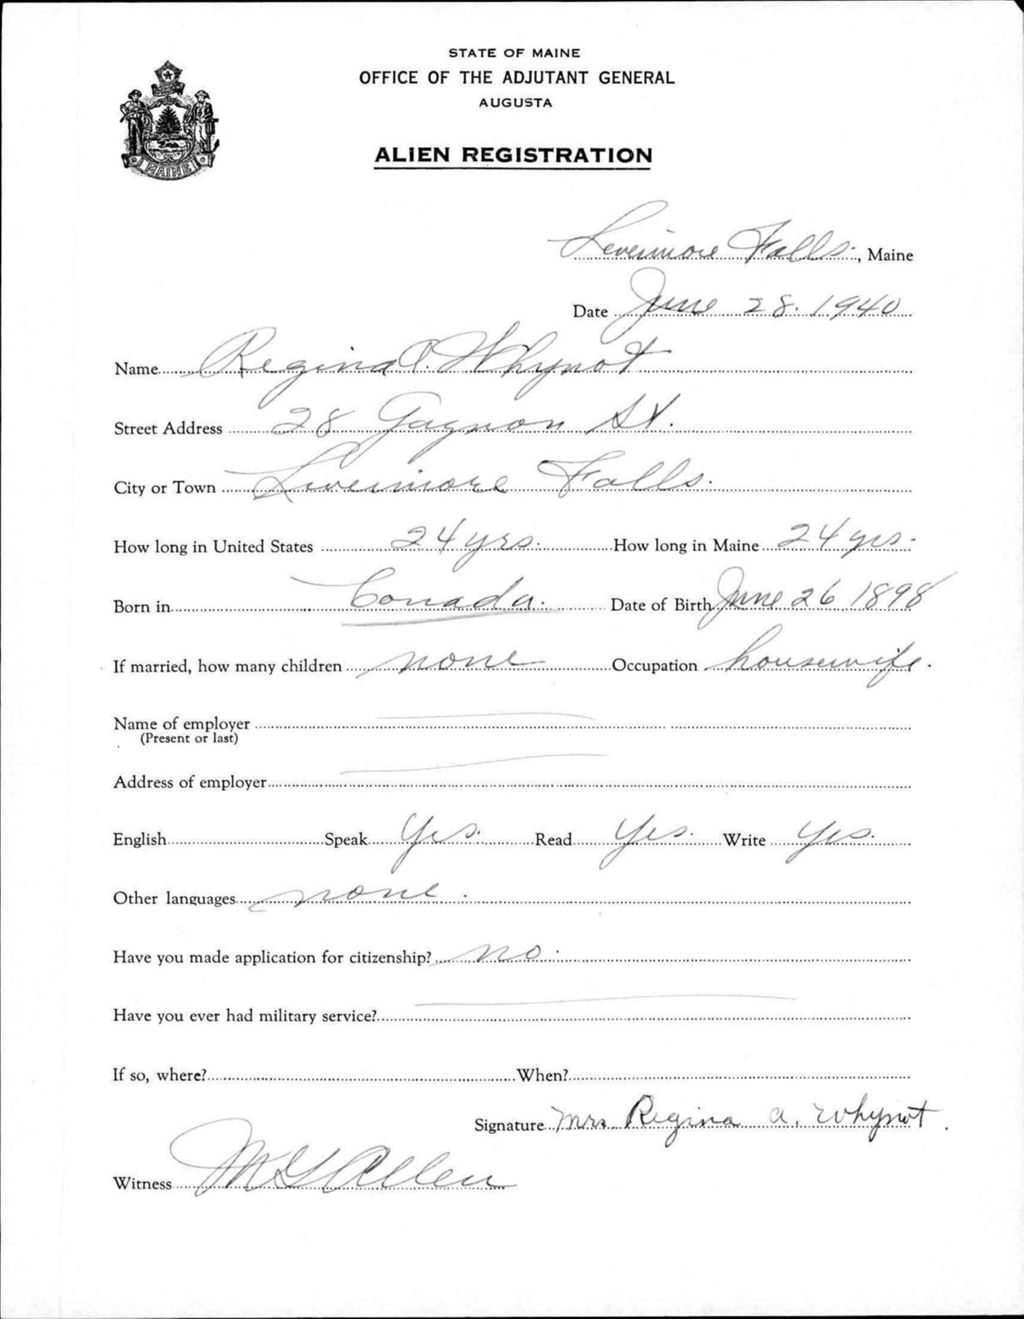 STATE OF MAINE
OFFICE OF THE ADJUTANT GENERAL
AUGUSTA
MAINE
ALIEN REGISTRATION
Livermore Falls, Maine
Date June 28. 1940
Name Regina A. Whynot
Street Address 28 Gagnon St.
City or Town Livermore Falls.
How long in United States 24 yrs. How long in Maine 24 yrs.
Born in Canada. Date of Birth June 26 1898
If married, how many children none Occupation housewife.
Name of employer
(Present or last)
Address of employer
English Speak Yes. Read Yes. Write Yes.
Other languages none.
Have you made application for citizenship? no.
Have you ever had military service?
If so, where? When?
Signature Mrs Regina A. Whynot.
Witness Allen